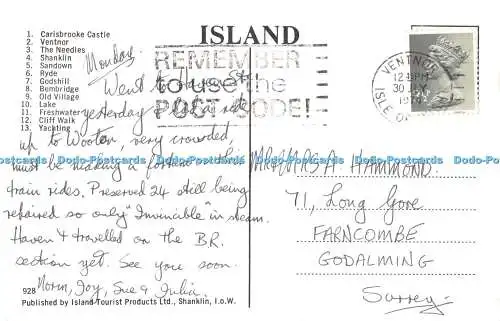 ISLAND
1. Carisbrooke Castle
2. Ventnor
3. The Needles
4. Shanklin
5. Sandown
6. Ryde
7. Godshill
8. Bembridge
9. Old Village
10. Lake
11. Freshwater
12. Cliff Walk
13. Yachting
REMEMBER
to use the
POST CODE!
VENTNOR
12 15 PM
30
ISLE OF
Monday.
Went to Haven St
yesterday ride
up to Wooton, very crowded,
must be making a fortune
train rides. Preserved 24 still being
repaired so only "Invincible" in steam.
Haven't travelled on the BR.
section yet. See you soon.
Norm, Joy, Sue & Julia.
MR & MRS A HAMMOND.
71, Long Gore
FARNCOMBE
GODALMING
Surrey.
928
Published by Island Tourist Products Ltd., Shanklin, I.o.W.
Dodo-Postcards Dodo-Postcards Dodo-Postcards Dodo-Postcards Dodo-Postcards Dodo-Postcards